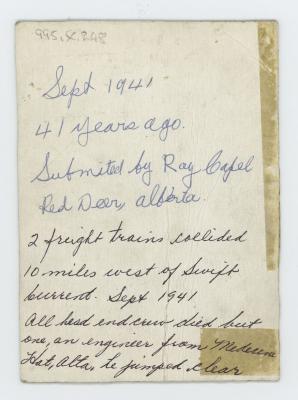 995.X.248
Sept 1941
41 years ago.
Submited by Ray Capel
Red Deer, alberta.
2 freight trains collided
10 miles west of Swift
Current. Sept 1941.
All head end crew died but
one, an engineer from Medecine
Hat, Alta, he jumped clear